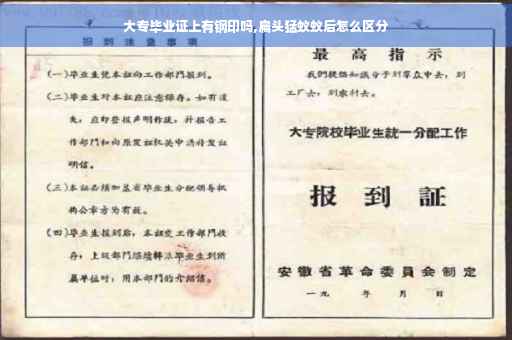 大专毕业证上有钢印吗,扁头猛蚁蚁后怎么区分
报到注意事项
(一)毕业生凭本证向工作部门报到。
(二)毕业生对本证应注意保存。如有遗
失,应即登报声明作废,并报告工
作部门和向原发证机关申请补发证
明信。
(三)本证必须加盖省毕业生分配领导机
构公章方为有效。
(四)毕业生报到后,本证交工作部门收
存;上级部门
毕业生到所
属单位时,用本部门的介绍信。
最高指示
我们提倡知识分子到群众中去,到
工厂去,到农村去。
大专院校毕业生统一分配工作
报到证
安徽省革命委员会制定
一九 年 月 日